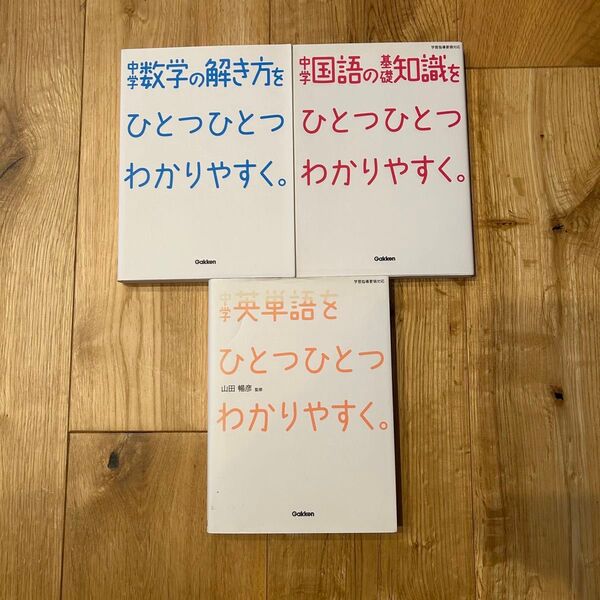 中学数学の解き方を
ひとつひとつ
わかりやすく。
Gakken
学習指導要領対応
中学国語の基礎知識を
ひとつひとつ
わかりやすく。
Gakken
学習指導要領対応
中学英単語を
ひとつひとつ
山田 暢彦 監修
わかりやすく。
Gakken